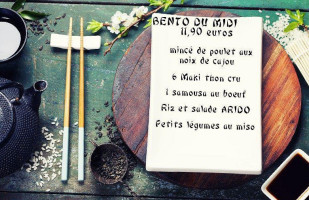 BENTO DU MIDI
11,90 euros
mincé de poulet aux
noix de cajou
6 Maki thon cru
1 samousa au boeuf
Riz et salade ARIDO
Petits légumes au miso